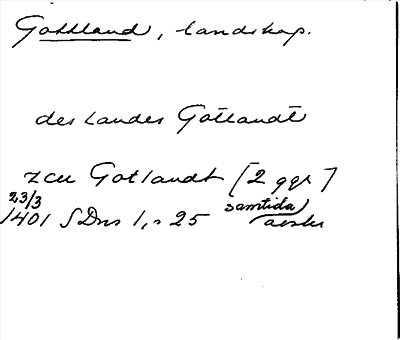 Gottland, landskap.
des Landes Gotlandt
zcu Gotlandt [2 ggr]
23/3 samtida
1401 SDns 1, s 25 avskr